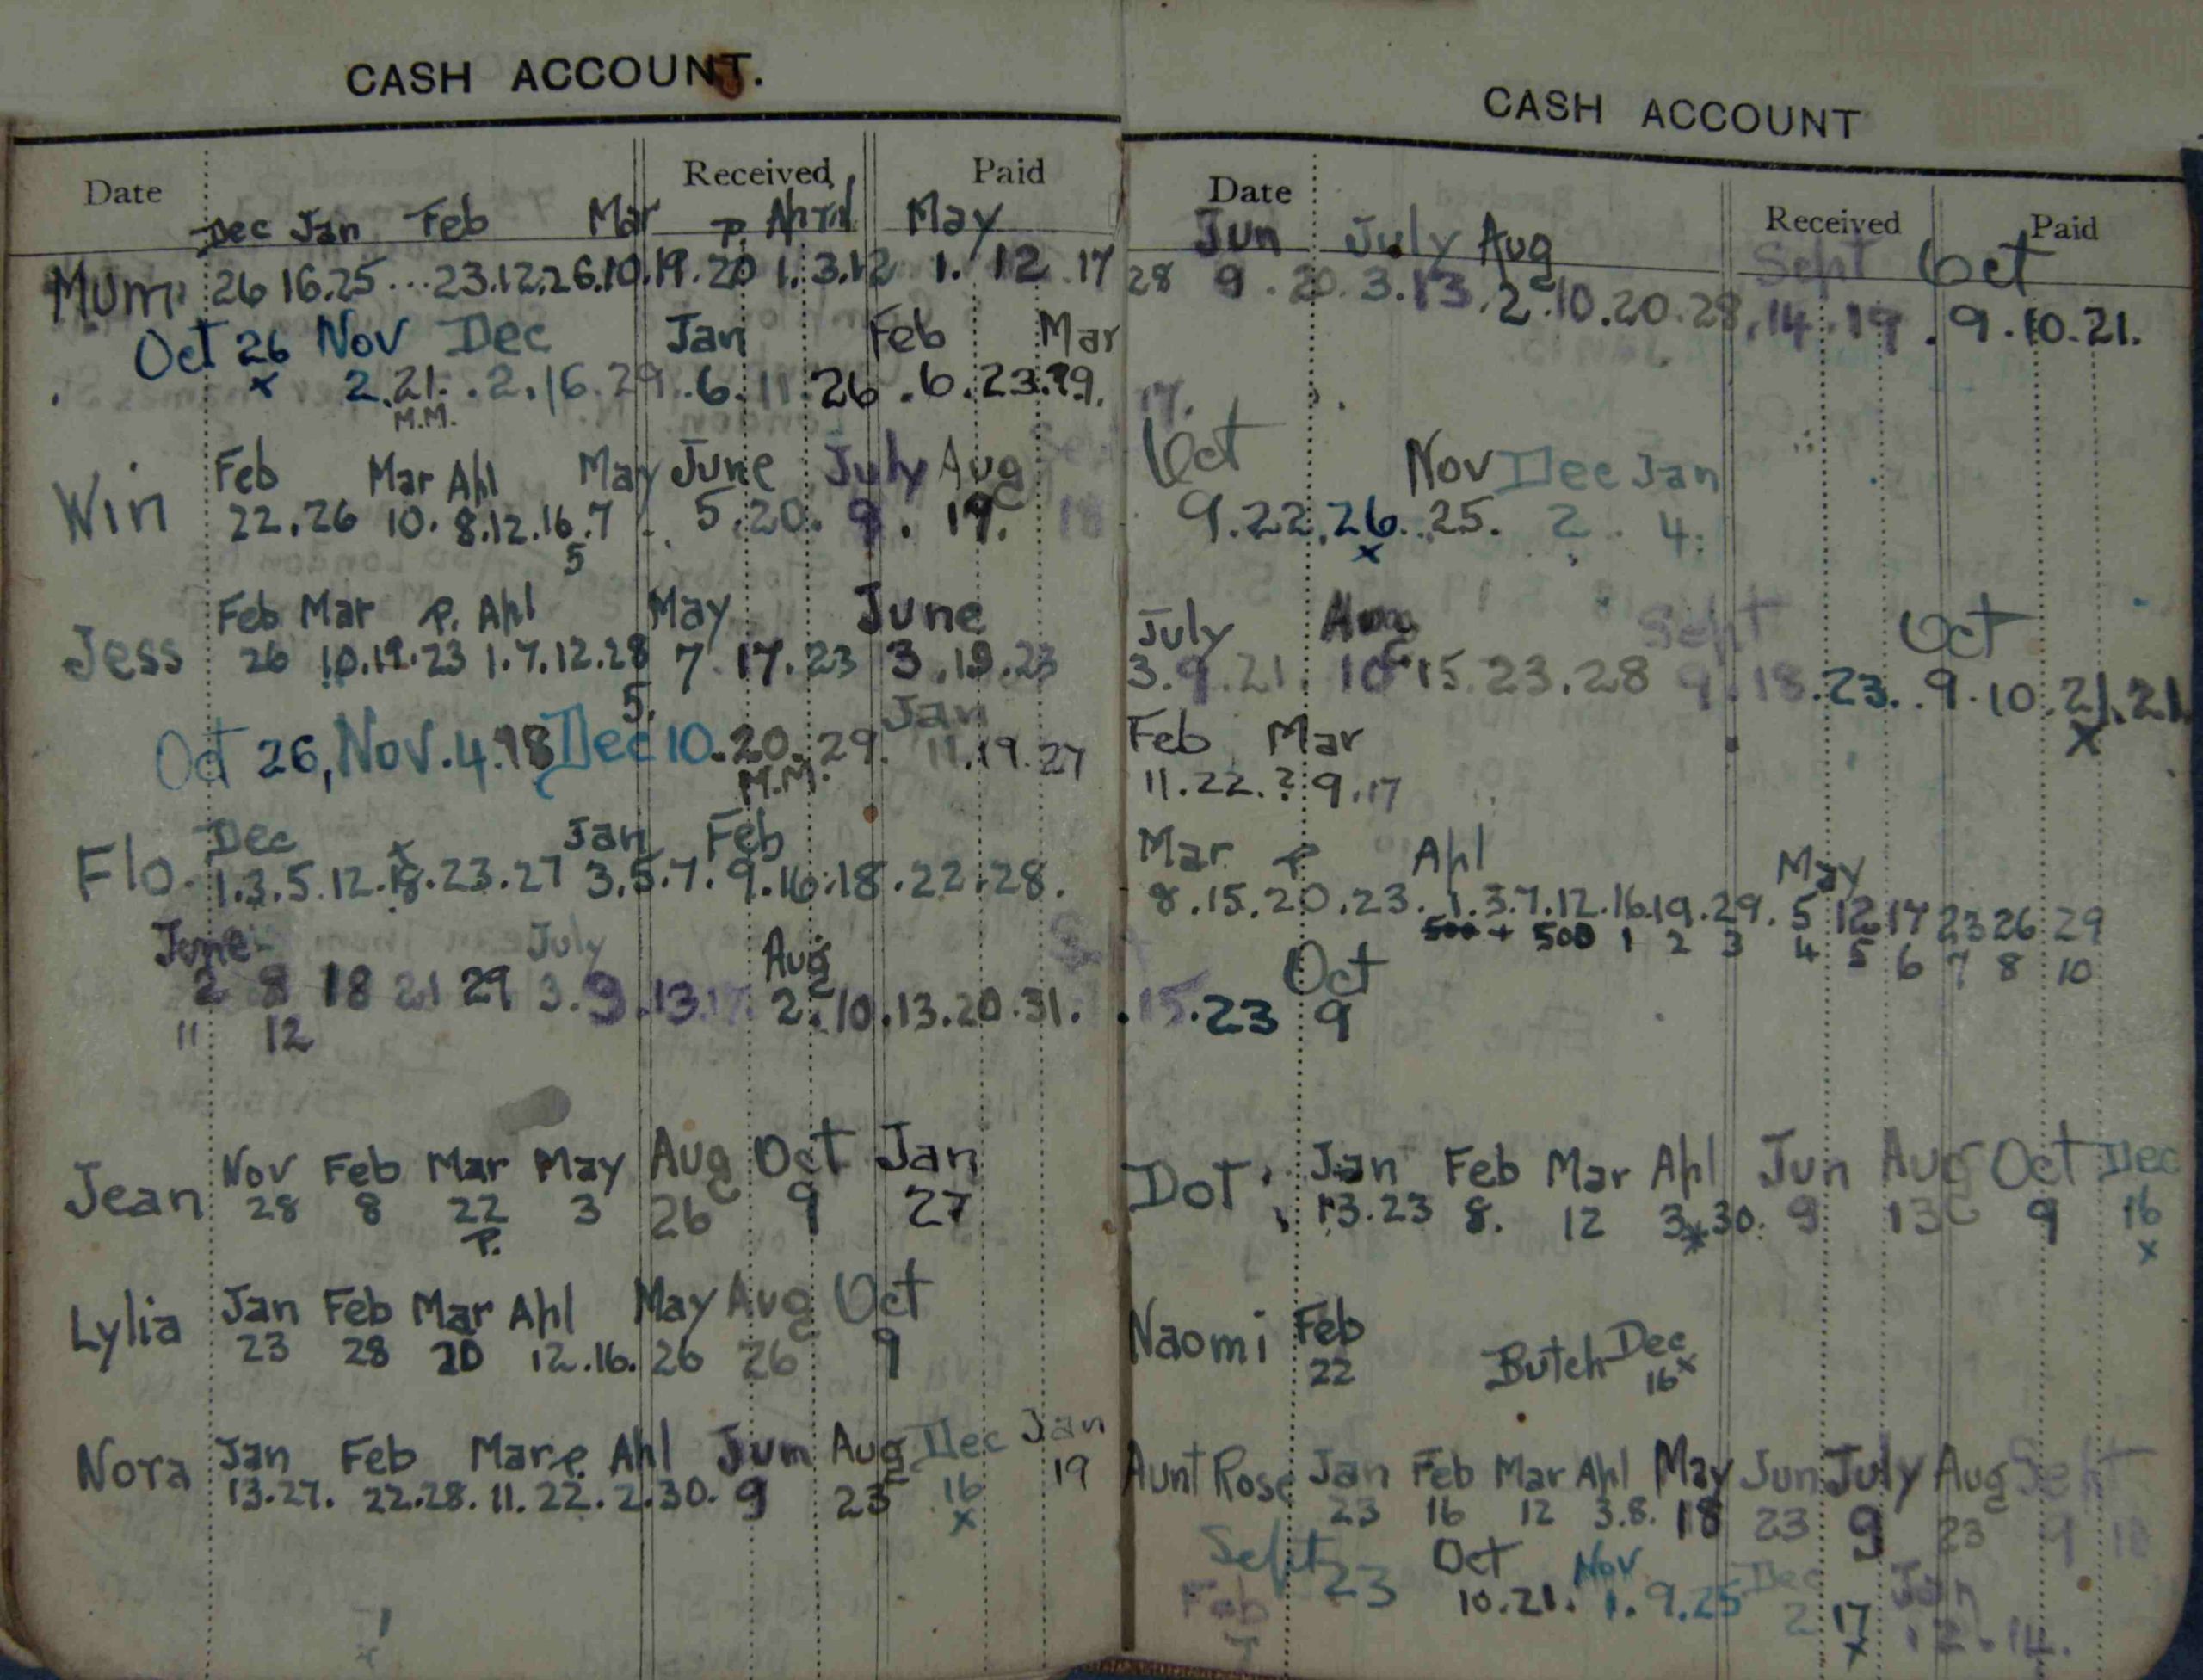 CASH ACCOUNT.
Date Received Paid
Dec Jan Feb Mar P. Apl May
Mum 26 16.25 ... 23.12.26.10.19.20 1.3.12 1. 12 17
Oct 26 Nov Dec Jan Feb Mar
x 2.21. .2.16.29 .6.11.26 .6.23. 9.
M.M.
Feb Mar Apl May June July Aug
Win 22.26 10. 8.12.16.7 5.20. 9. 19. 18
5
Feb Mar P. Apl May June
Jess 26 10.19.23 1.7.12.28 7 17.23 3.19.23
5.
Oct 26, Nov.4.18 Dec 10.20.29. Jan 11.19.27
M.M.
Dec x Jan Feb
Flo. 1.3.5.12.18.23.27 3.5.7.9.16.18.22.28.
June July Aug
2 8 18 21 29 3.9.13.17 2.10.13.20.31.
11 12
Nov Feb Mar May Aug Oct Jan
Jean 28 8 22 3 26 9 27
P.
Jan Feb Mar Apl May Aug Oct
Lylia 23 28 20 12.16. 26 26 9
Jan Feb Mar P. Apl Jun Aug Dec Jan
Nora 13.27. 22.28. 11.22. 2.30. 9 23 16 19
x
CASH ACCOUNT
Date Received Paid
Jun July Aug Sept Oct
28 9.20.3.13.2.10.20.28.14.19.9.10.21.
17.
Oct Nov Dec Jan
9.22.26..25. 2. 4.
x
July Aug Sept Oct
3.9.21. 10.15.23.28 9.18.23..9.10.21.21
x
Feb Mar
11.22.?.9.17
Mar P Apl May
8.15.20.23. 1.3.7.12.16.19.29. 5 12 17 23 26 29
500 + 500 1 2 3 4 5 6 7 8 10
Oct
.15.23 9
Jan Feb Mar Apl Jun Aug Oct Dec
Dot 13.23 8. 12 3.30. 9 13 9 16
x
Naomi Feb Butch Dec
22 16 x
Aunt Rose Jan Feb Mar Apl May Jun July Aug Sept
23 16 12 3.8. 18 23 9 23 9 18
Sept 23 Oct Nov Dec Jan
10.21. 1.9.25 2 17 .2.14.
x
Feb
7